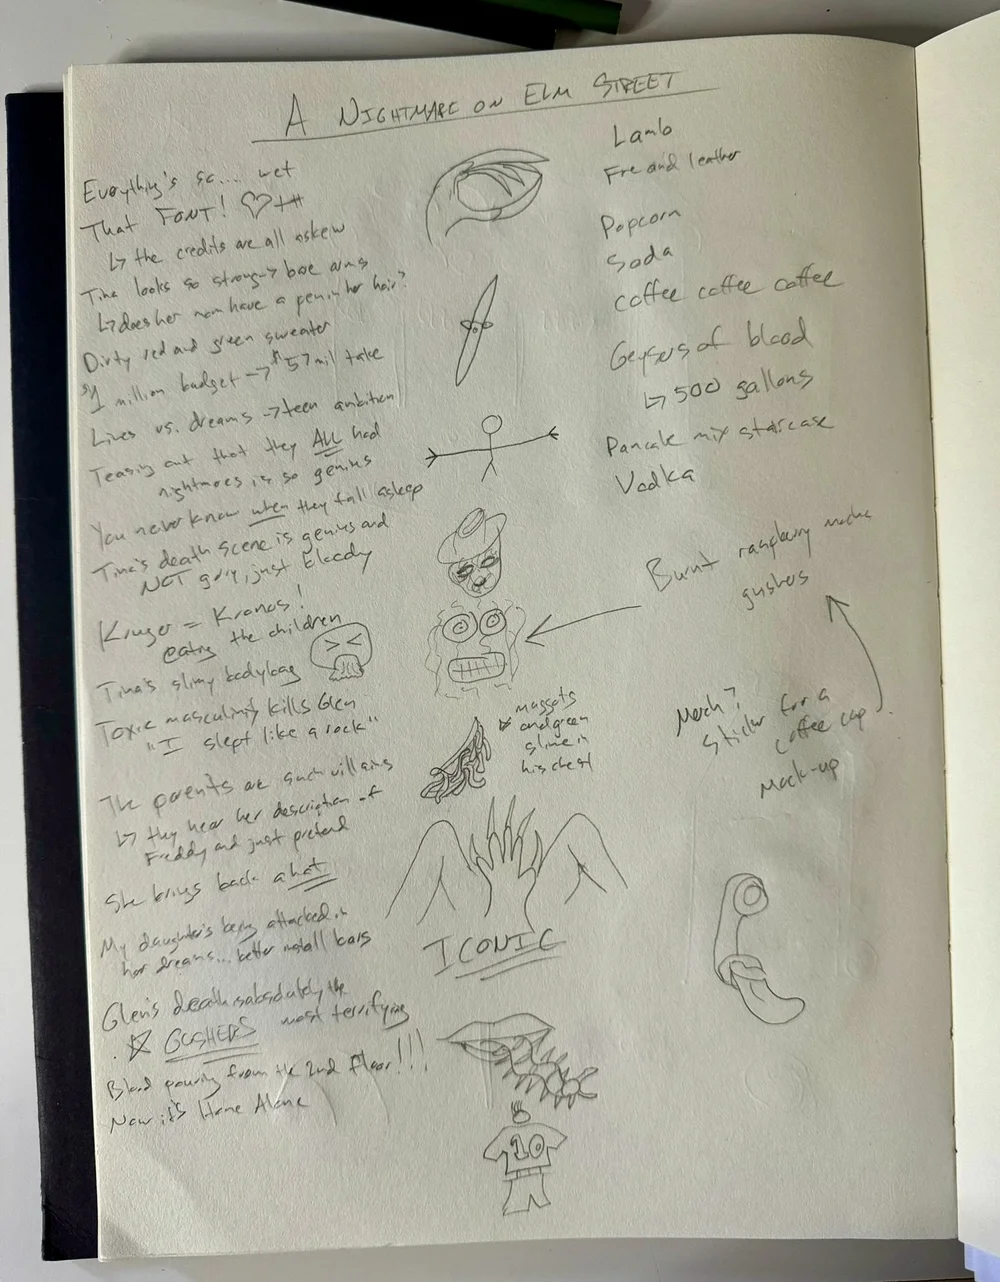 A NIGHTMARE ON ELM STREET
Everything's so... wet
That FONT! ♡++
↳ the credits are all askew
Tina looks so strong → bare arms
↳ does her mom have a pen in her hair?
Dirty red and green sweater
$1 million budget → $57 mil take
Lives vs. dreams → teen ambition
Teasing out that they ALL had
nightmares is so genius
You never know when they fall asleep
Tina's death scene is genius and
NOT gory, just bloody
Kruger = Kronos!
eating the children
Tina's slimy bodybag
Toxic masculinity kills Glen
"I slept like a rock"
The parents are such villains
↳ they hear her description of
Freddy and just pretend
She brings back a hat
My daughter's being attacked in
her dreams... better install bars
Glen's death is absolutely the
☆ GUSHERS most terrifying
Blood pouring from the 2nd floor!!!
Now it's Home Alone
maggots
and green
slime in
his chest
ICONIC
10
Lamb
Fire and leather
Popcorn
Soda
coffee coffee coffee
Geysers of blood
↳ 500 gallons
Pancake mix staircase
Vodka
Burnt raspberry mocha
gushers
Merch?
Sticker for a
coffee cup
mock-up